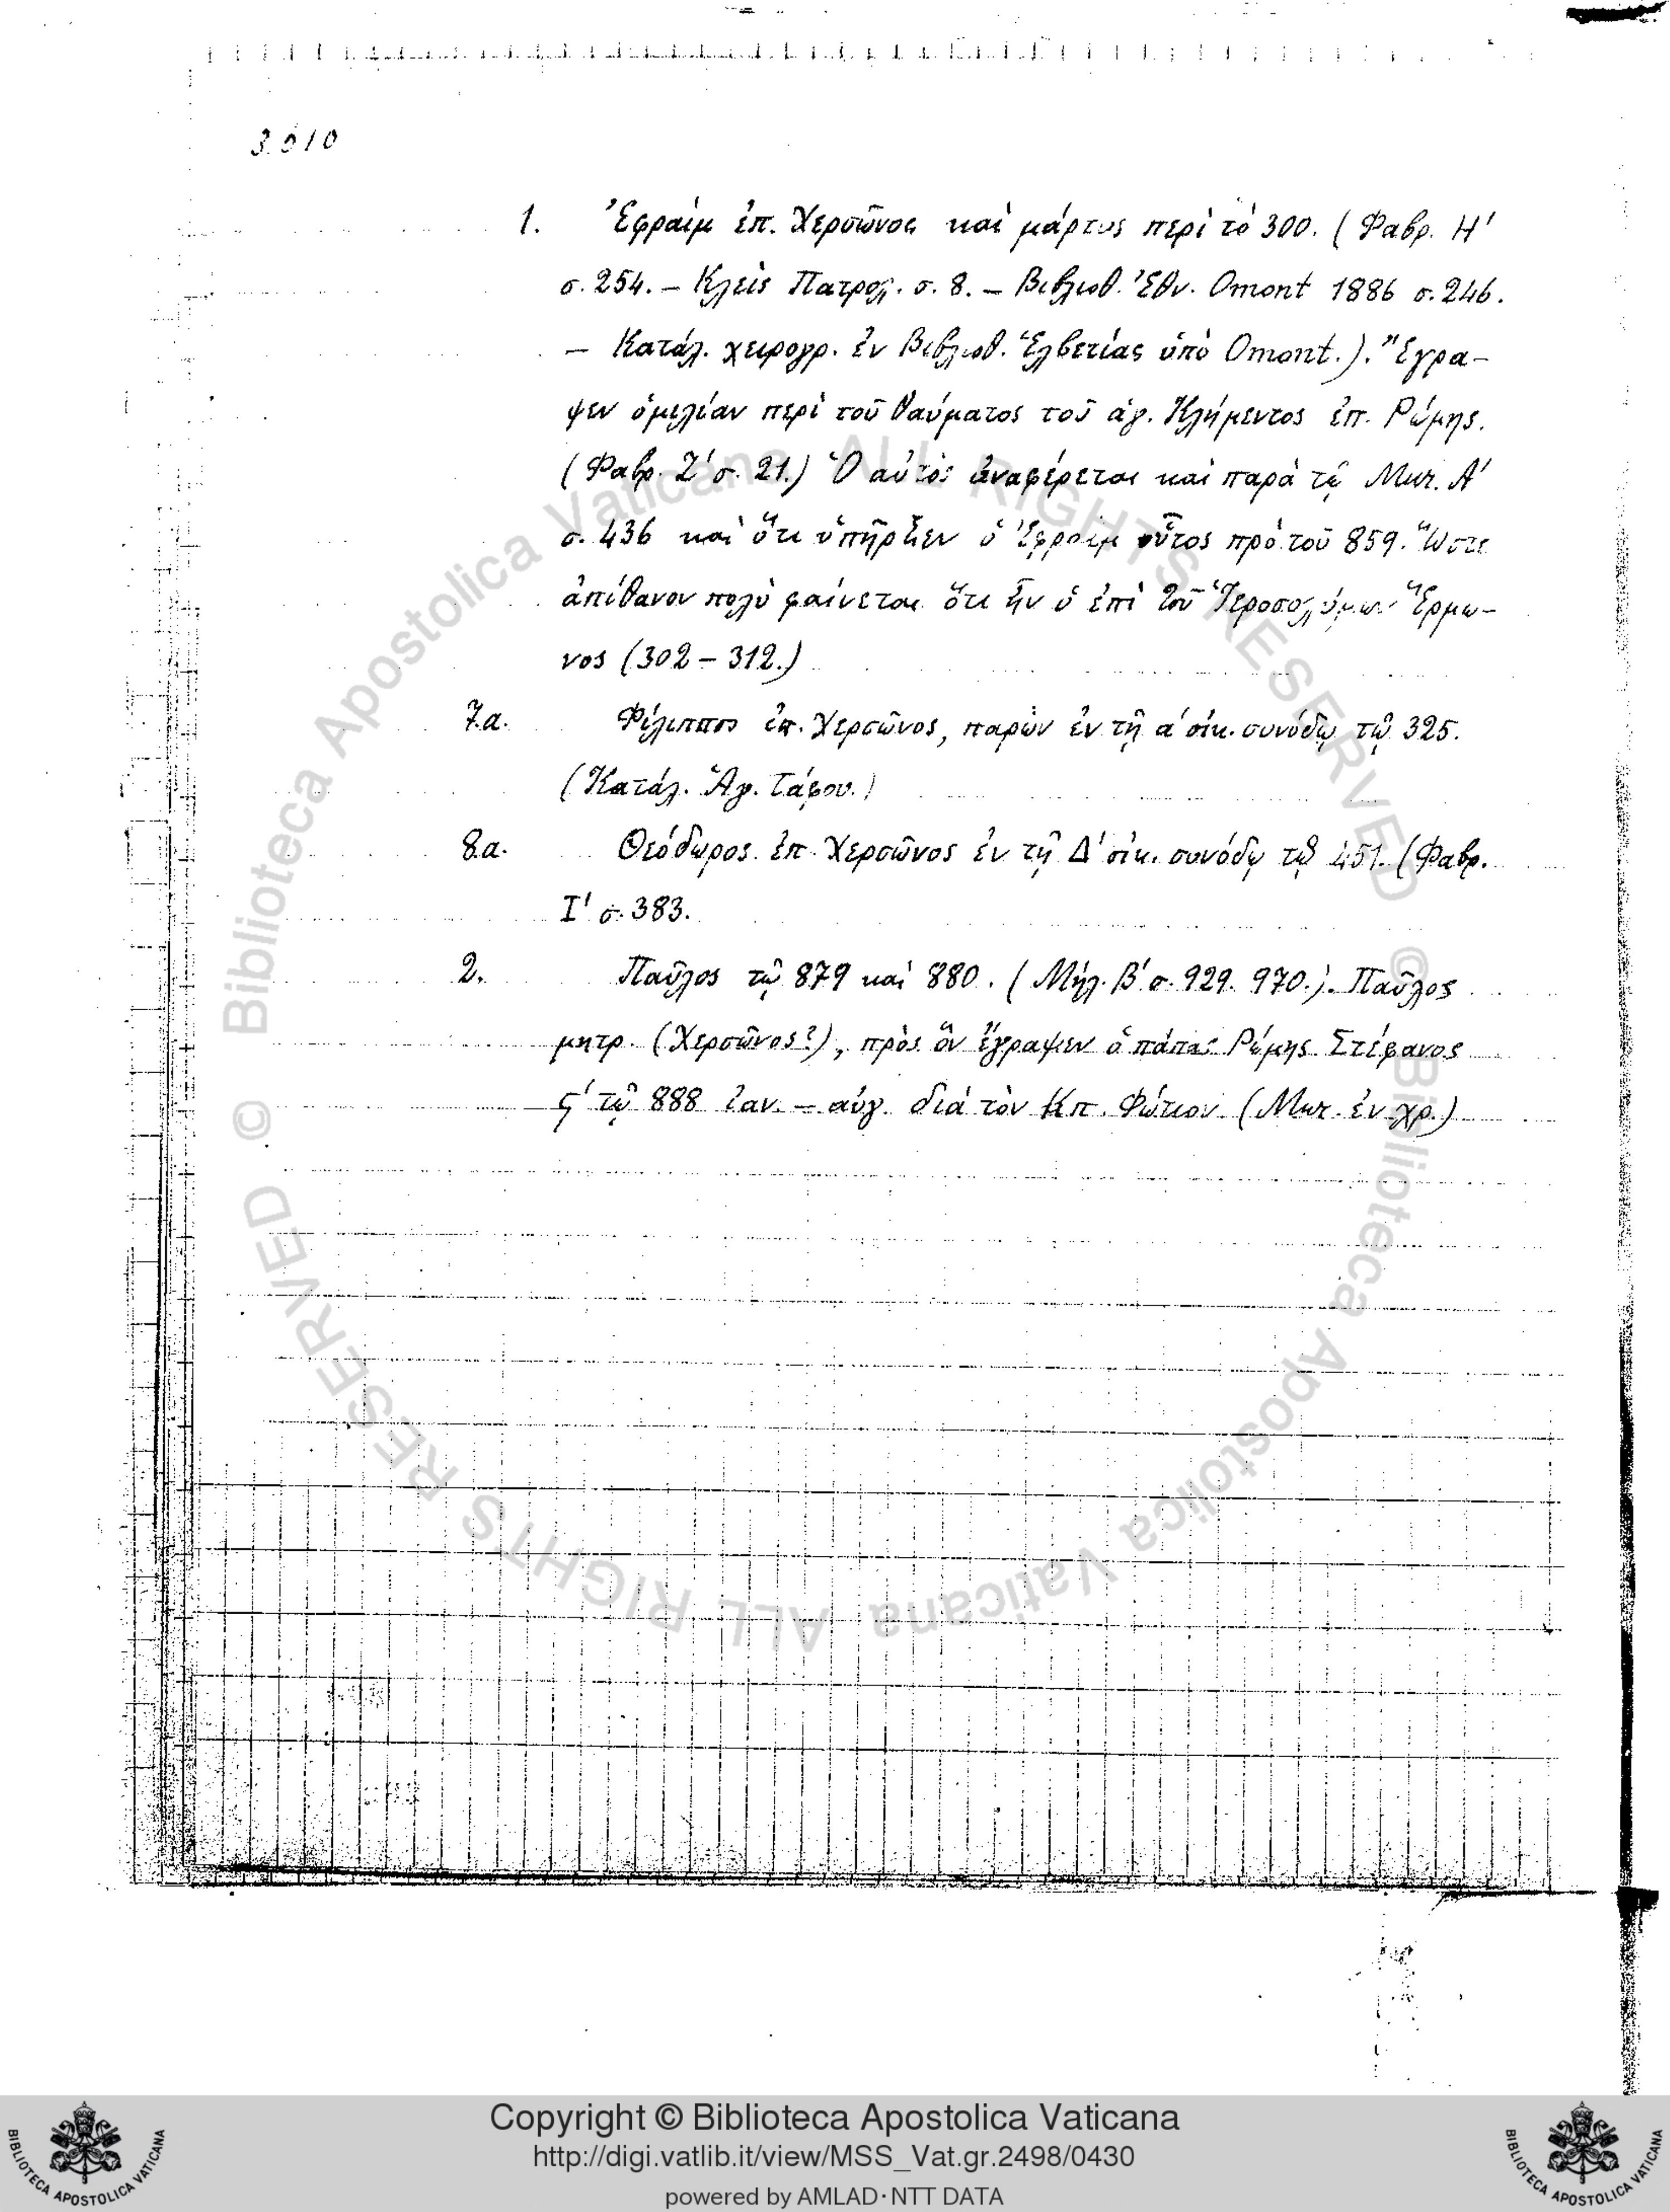 3.010
1. Ἐφραὶμ ἐπ. Χερσῶνος καὶ μάρτυς περὶ τὸ 300. (Φαβρ. Η'
σ. 254. – Κλεὶς Πατρολ. σ. 8. – Βιβλιοθ. Ἐθν. Omont 1886 σ. 246.
– Κατάλ. χειρογρ. ἐν Βιβλιοθ. Ἑλβετίας ὑπὸ Omont.). Ἔγρα-
ψεν ὁμιλίαν περὶ τοῦ θαύματος τοῦ ἁγ. Κλήμεντος ἐπ. Ρώμης.
(Φαβρ. Ζ' σ. 21.) Ὁ αὐτὸς ἀναφέρεται καὶ παρὰ τῷ Μιν. Α'
σ. 436 καὶ ὅτι ὑπῆρξεν ὁ Ἐφραὶμ οὗτος πρὸ τοῦ 859. Ὥστε
ἀπίθανον πολὺ φαίνεται ὅτι ἦν ὁ ἐπὶ τοῦ Ἱεροσολύμων Ἕρμω-
νος (302 – 312.)
7.α. Φίλιππος ἐπ. Χερσῶνος, παρὼν ἐν τῇ α' οἰκ. συνόδῳ τῷ 325.
(Κατάλ. Ἁγ. Τάφου.)
8.α. Θεόδωρος ἐπ. Χερσῶνος ἐν τῇ Δ' οἰκ. συνόδῳ τῷ 451. (Φαβρ.
Ι' σ. 383.
2. Παῦλος τῷ 879 καὶ 880. (Μήλ. Β' σ. 929. 970.). Παῦλος
μητρ. (Χερσῶνος?), πρὸς ὃν ἔγραψεν ὁ πάπας Ρώμης Στέφανος
ς' τῷ 888 ἰαν. – αὐγ. διὰ τὸν Κπ. Φώτιον (Μιν. ἐν χρ.)
© Biblioteca Apostolica Vaticana ALL RIGHTS RESERVED © Biblioteca Apostolica Vaticana ALL RIGHTS RESERVED
Copyright © Biblioteca Apostolica Vaticana
http://digi.vatlib.it/view/MSS_Vat.gr.2498/0430
powered by AMLAD·NTT DATA
BIBLIOTECA APOSTOLICA VATICANA
BIBLIOTECA APOSTOLICA VATICANA